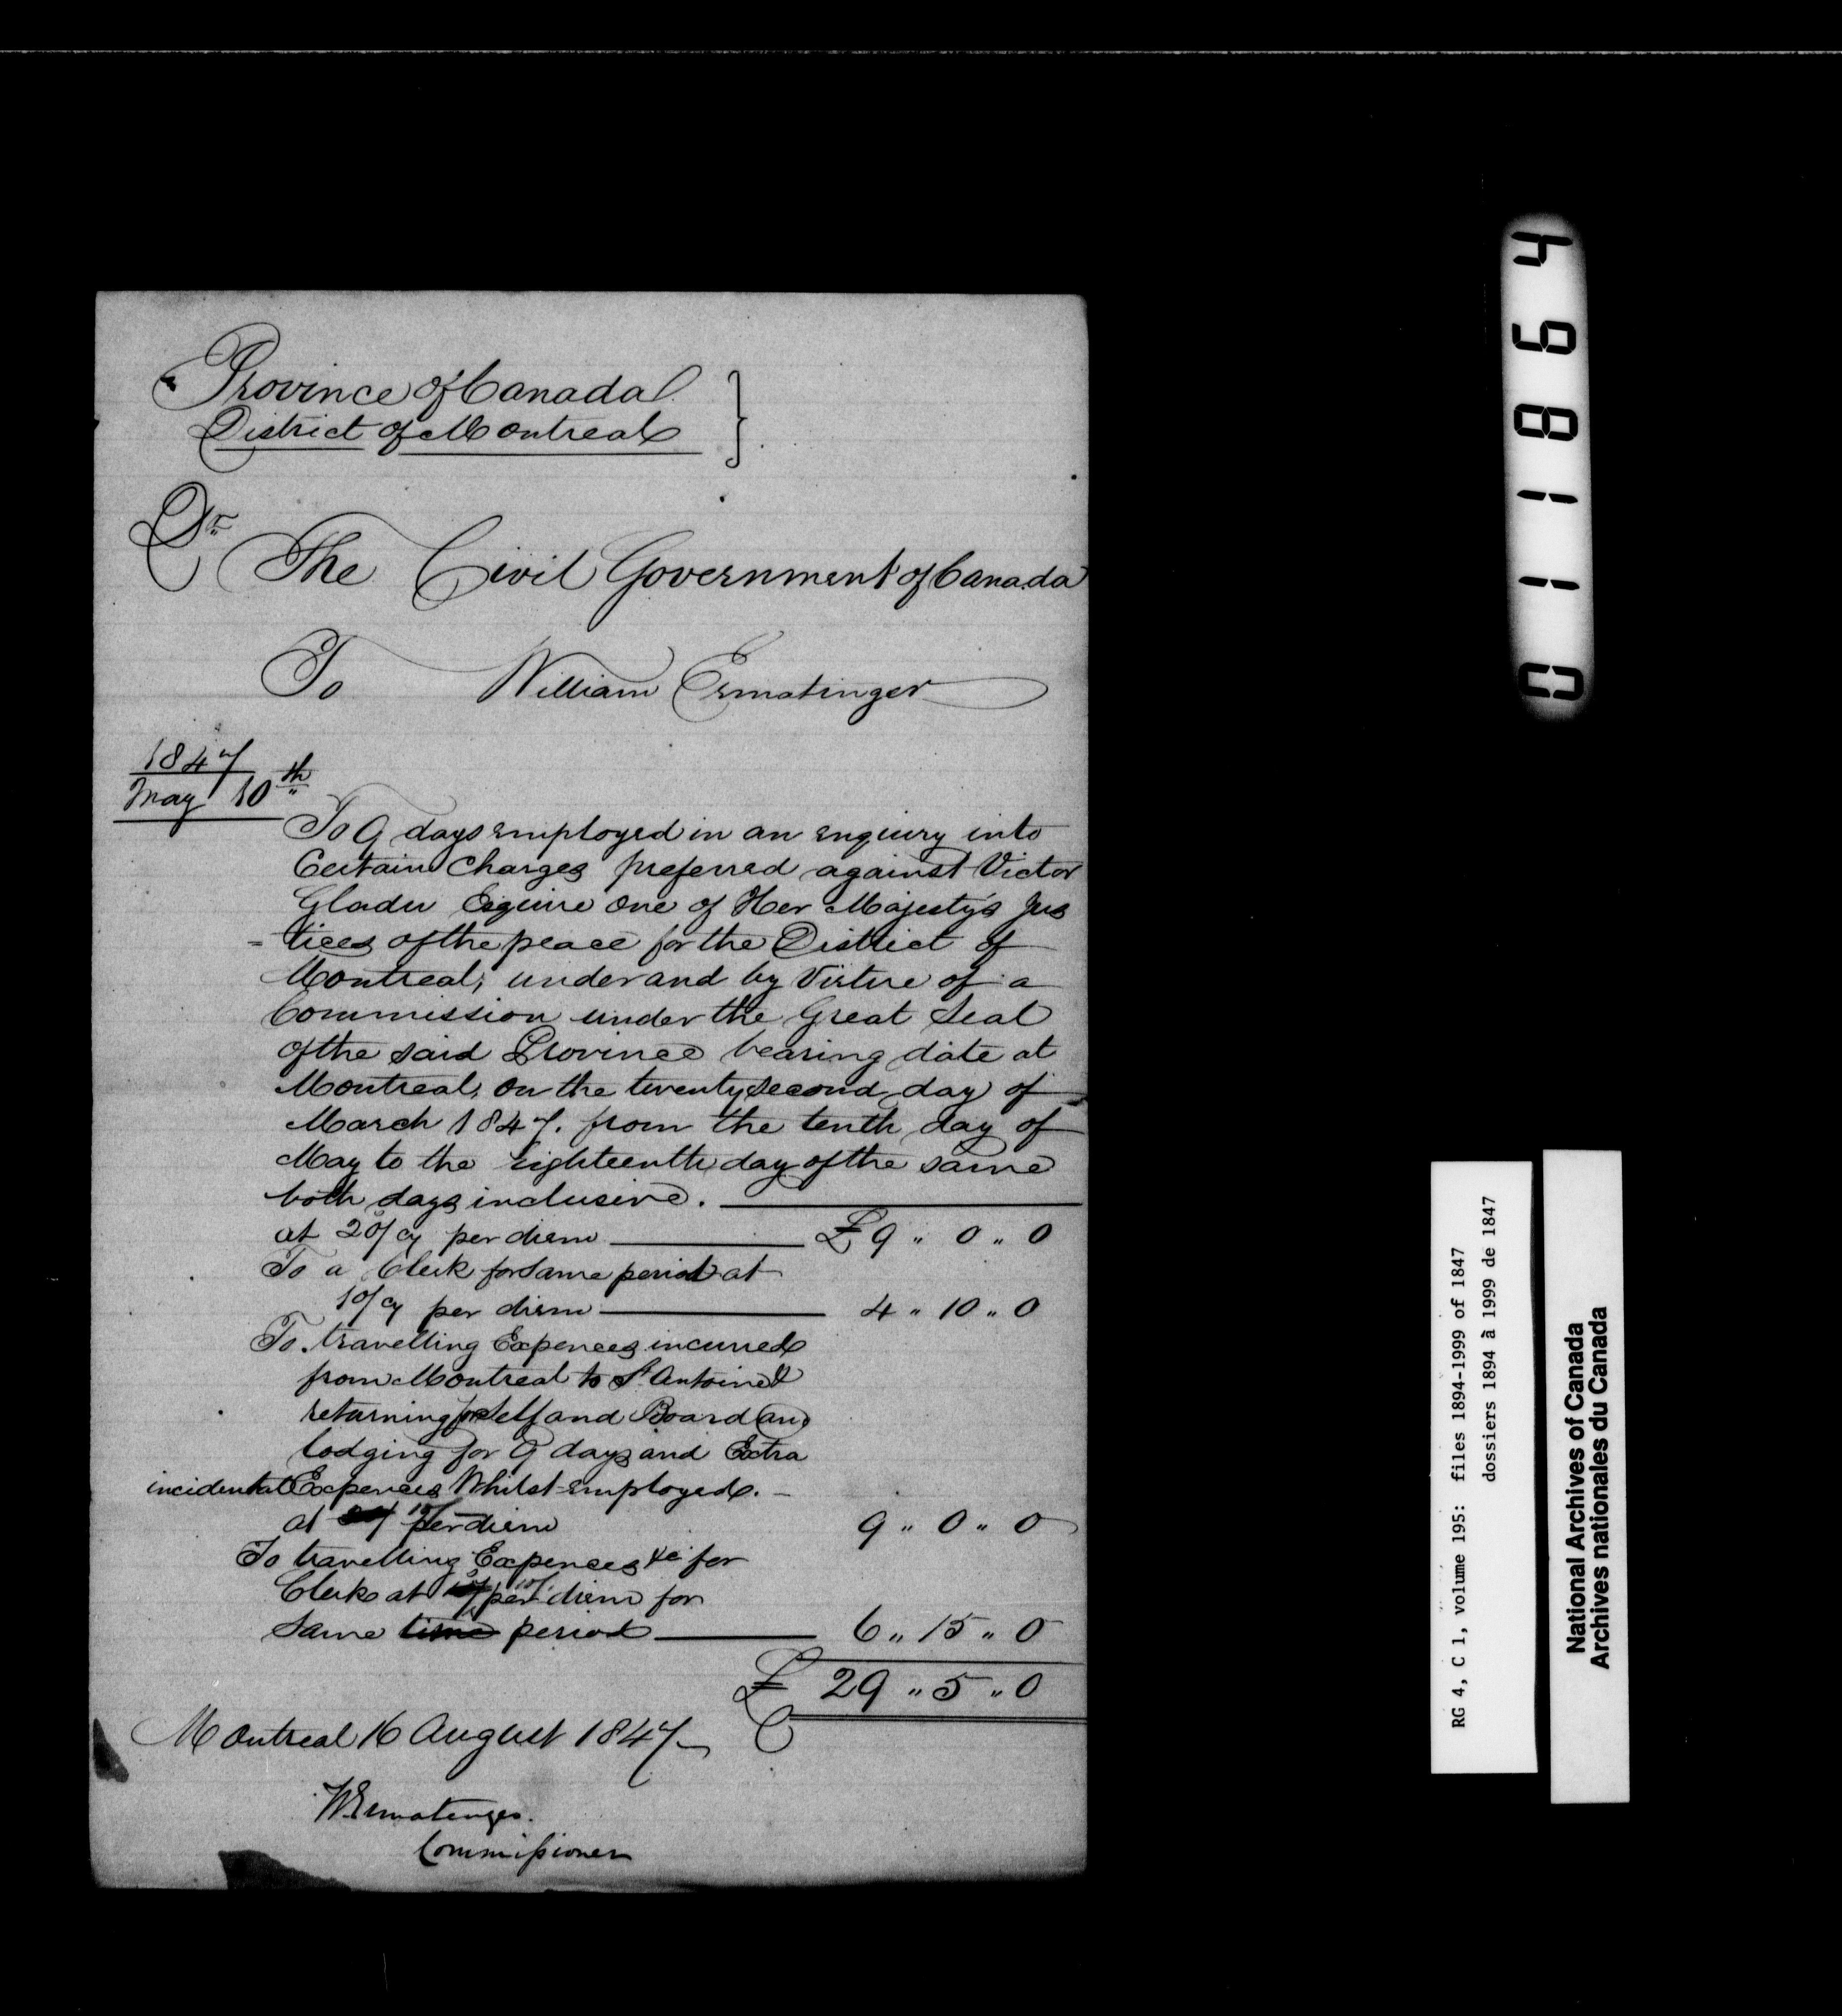 Province of Canada
District of Montreal }
Dr
The Civil Government of Canada
To William Ermatinger
1847
May 10th
To 9 days employed in an enquiry into
Certain Charges preferred against Victor
Gladu Esquire One of Her Majesty's Jus
=tices of the peace for the District of
Montreal, under and by Virtue of a
Commission under the Great Seal
Of the said Province bearing date at
Montreal, On the twenty second day of
March 1847. from the tenth day of
May to the eighteenth day of the same
both days inclusive.
at 20/ cy per diem £9 " 0 " 0
To a Clerk for Same period at
10/ cy per diem 4 " 10 " 0
To travelling Expences incurred
from Montreal to St Antoine &
returning for Self and Board and
lodging for 9 days and Extra
incidental Expences Whilst employed.
at per diem 9 " 0 " 0
To travelling Expences &c for
Clerk at per diem for
Same time period 6 " 15 " 0
£ 29 " 5 " 0
Montreal 16 August 1847
W Ermatinger.
Commissioner
011864
RG 4, C 1, volume 195: files 1894-1999 of 1847
dossiers 1894 à 1999 de 1847
National Archives of Canada
Archives nationales du Canada